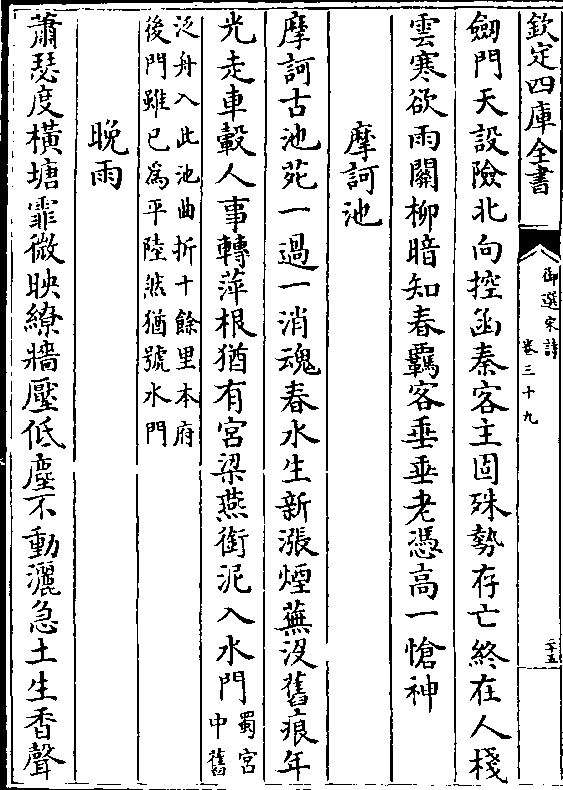 欽定四庫全書
御選宋詩
卷三十九
二十五
劒門天設險北向控函秦客主固殊勢存亡終在人棧
雲寒欲雨關柳暗知春羈客垂垂老憑高一愴神
摩訶池
摩訶古池苑一過一消魂春水生新漲煙蕪没舊痕年
光走車轂人事轉萍根猶有宮梁燕銜泥入水門
蜀宮
中舊
泛舟入此池曲折十餘里本府
後門雖已爲平陸然猶號水門
晚雨
蕭瑟度橫塘霏微映繚牆壓低塵不動灑急土生香聲